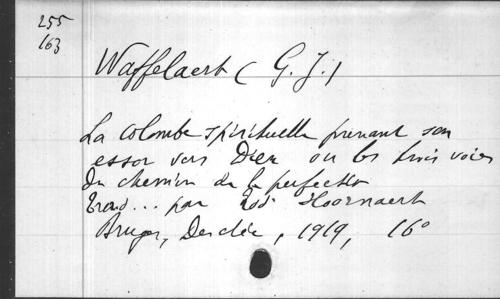 255
163
Waffelaert (G. J.)
La colombe spirituelle prenant son
essor vers Dieu ou les trois voies
du chemin de la perfection
Trad... par Rod. Hoornaert
Bruges, Desclée, 1919, 16°